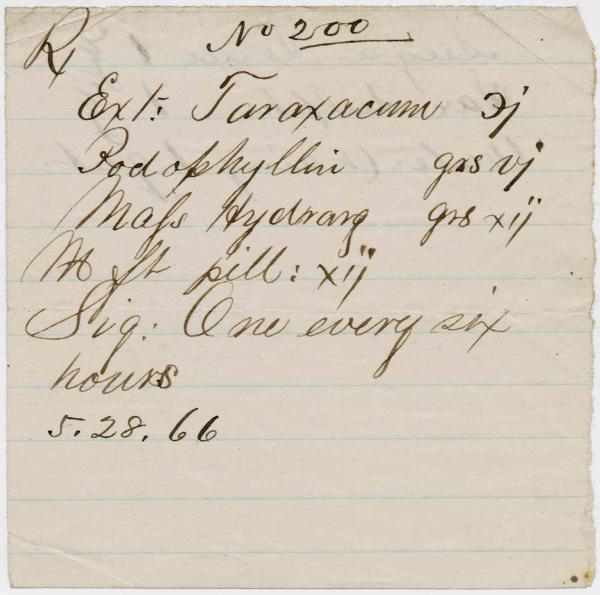 ℞ No 200
Ext: Taraxacum ℈j
Podophyllin grs vj
Mass Hydrarg grs xij
M ft pill: xij
Sig: One every six
hours
5.28.66